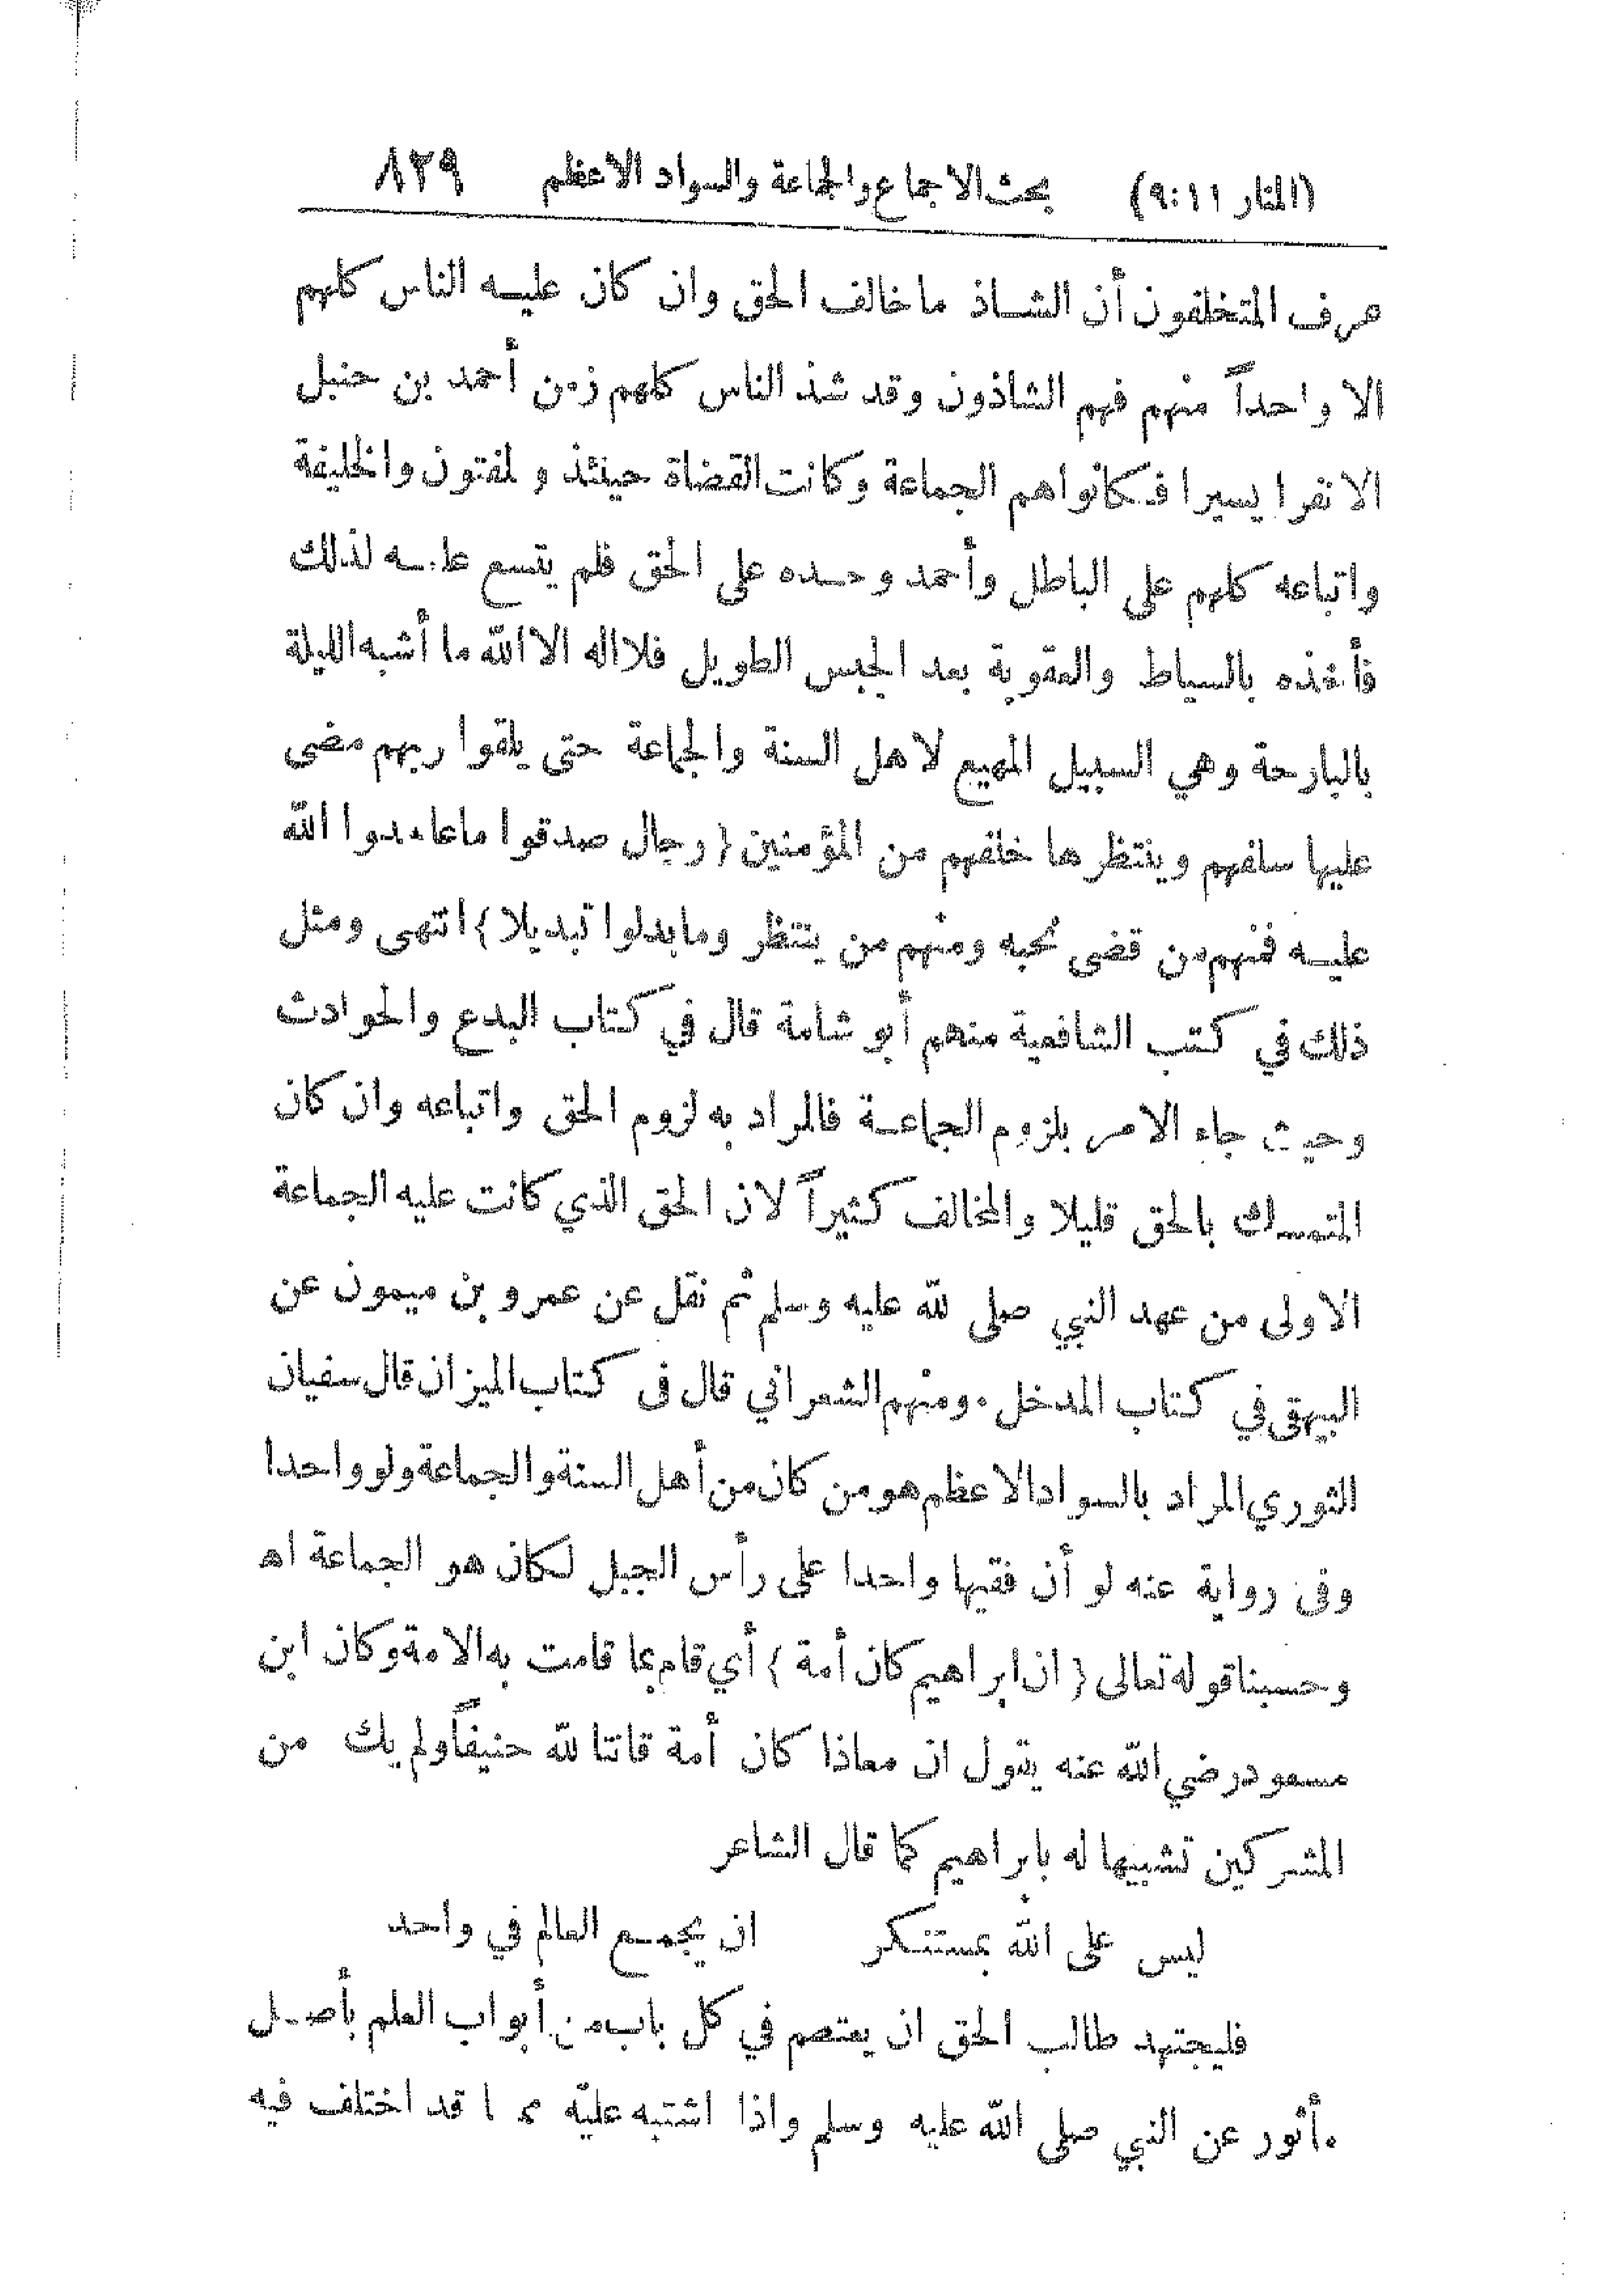 (المنار ٩:١١) بحث الاجماع والجماعة والسواد الاعظم ٨٢٩
عرف المتخلفون أن الشاذ ما خالف الحق وان كان عليه الناس كلهم
الا واحداً منهم فهم الشاذون وقد شذ الناس كلهم زمن أحمد بن حنبل
الا نفرا يسيرا فكانوا هم الجماعة وكانت القضاة حينئذ والمفتون والخليفة
واتباعه كلهم على الباطل وأحمد وحده على الحق فلم يتسع عليه لذلك
فأخذه بالسياط والعقوبة بعد الحبس الطويل فلا اله الا الله ما أشبه الليلة
بالبارحة وهي السبيل المهيع لاهل السنة والجماعة حتى يلقوا ربهم مضى
عليها سلفهم وينتظرها خلفهم من المؤمنين (رجال صدقوا ما عاهدوا الله
عليه فمنهم من قضى نحبه ومنهم من ينتظر وما بدلوا تبديلا) انتهى ومثل
ذلك في كتب الشافعية منهم أبو شامة قال في كتاب البدع والحوادث
وحيث جاء الامر بلزوم الجماعة فالمراد به لزوم الحق واتباعه وان كان
المتمسك بالحق قليلا والمخالف كثيراً لان الحق الذي كانت عليه الجماعة
الاولى من عهد النبي صلى لله عليه وسلم ثم نقل عن عمرو بن ميمون عن
البيهقي في كتاب المدخل. ومنهم الشعراني قال فى كتاب الميزان قال سفيان
الثوري المراد بالسواد الاعظم هو من كان من أهل السنة والجماعة ولو واحدا
وفى رواية عنه لو أن فقيها واحدا على رأس الجبل لكان هو الجماعة اه
وحسبنا قوله تعالى (ان ابراهيم كان أمة) أي قام بما قامت به الامة وكان ابن
مسعود رضي الله عنه يقول ان معاذا كان أمة قانتا لله حنيفاً ولم يك من
المشركين تشبيها له بابراهيم كما قال الشاعر
ليس على الله بمستنكر ان يجمع العالم في واحد
فليجتهد طالب الحق ان يعتصم في كل باب من أبواب العلم بأصل
مأثور عن النبي صلى الله عليه وسلم واذا اشتبه عليه مما قد اختلف فيه